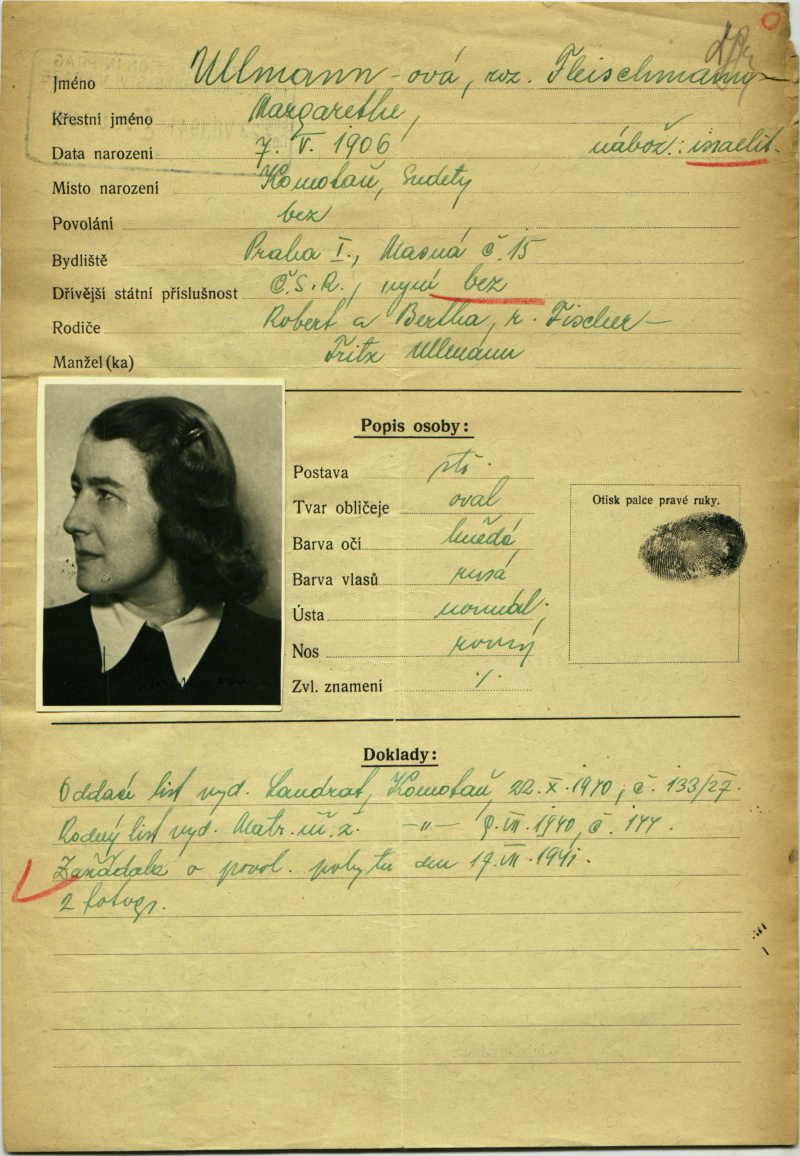 Jméno Ullmann-ová, roz. Fleischmann
Křestní jméno Margarethe,
Data narozeni 7. V. 1906 nábož.: israelit.
Misto narozeni Komotau, Sudety
Povolání bez
Bydliště Praha I., Masná č. 15
Dřívější státní příslušnost Č.S.R., nyní bez
Rodiče Robert a Bertha, r. Fischer –
Manžel (ka) Fritz Ullmann
Popis osoby:
Postava stř.
Tvar obličeje oval
Barva oči hnědá
Barva vlasů rusá
Ústa normál.
Nos rovný
Zvl. znamení ./.
Otisk palce pravé ruky.
Doklady:
Oddací list vyd. Landrat, Komotau, 22. X. 1940, č. 133/27.
Rodný list vyd. Matr. –„– 1940, č. 144.
o povol. pobytu dne 17. VII. 1941.
2 fotogr.